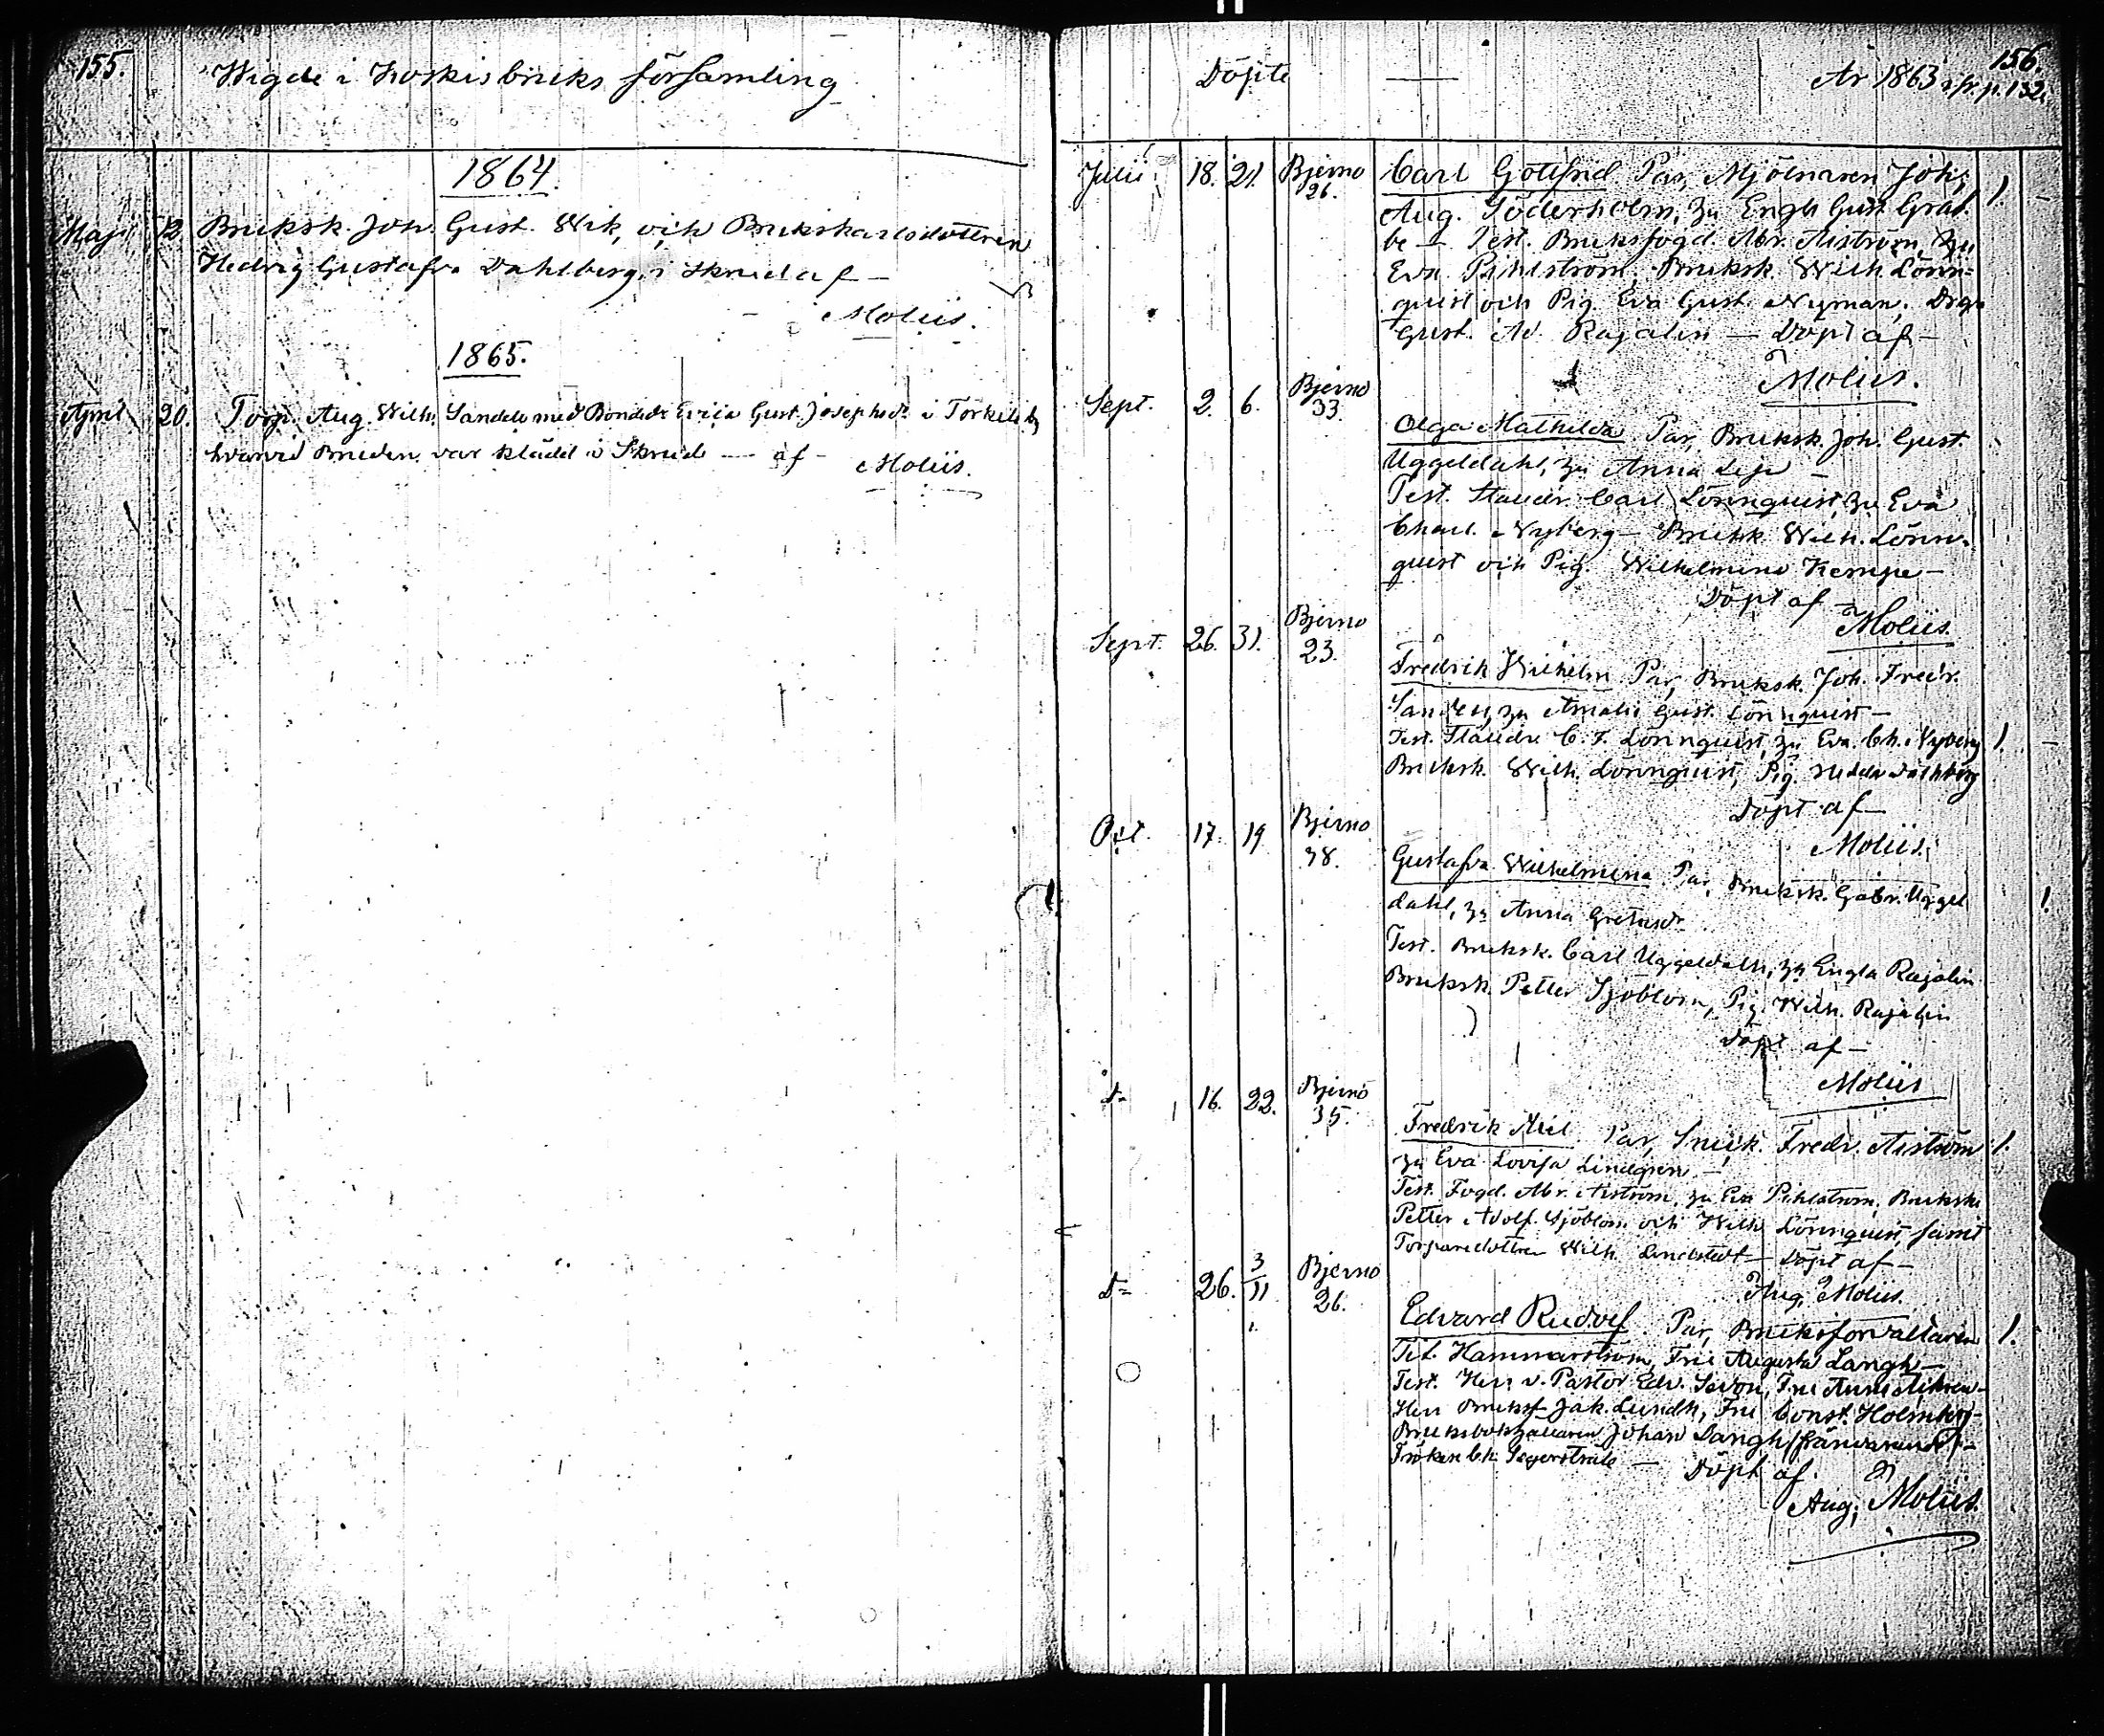 155.
Wigde i Koskis bruks församling
1864.
Maji 12 Bruksk. Joh. Gust. Wik, och Brukskarlsdottren
Hedvig Gustafva Dahlberg, i skrud af —
Moliis.
1865.
April 20. Torp. Aug. Wilh. Sandell med Bonded: Gust. Josephsdr i Torkila
hvarvid Bruden var klädd i Skrud — af — Moliis.
156.
Döpte — År 1863 p. 132.
Julii 18. 21. Bjerno 26. Carl Gottfrid Par, Mjölnaren Joh:
Aug. Söderholm, hu Engla Gust. Grah-
be — Test. Bruksfogd. Abr. Aiström, hu
Eva Pihlström, Bruksk. Wilh. Lönn-
quist och Pig. Eva Gust. Nyman, Drgn
Gust. Ad. Rajalin — Döpt af —
Moliis.
Sept. 2. 6. Bjerno 33. Olga Mathilda Par, Bruksk. Joh. Gust.
Uggeldahl, hu Anna Lisa —
Test. Stalldr. Carl Lönnquist, hu Eva
Charl. Nyberg — Bruksk. Wilh. Lönn-
quist och Pig. Wilhelmina Kempe —
Döpt af
Moliis.
Sept. 26. 31. Bjerno 23. Fredrik Wilhelm Par, Bruksk. Joh. Fredr.
Sandell, hu Amalia Gust. Lönnquist —
Test. Stalldr. C. F. Lönnquist, hu Eva Ch. Nyberg 1.
Bruksk. Wilh. Lönnquist, Pig. Hedda Dahlberg
Döpt af —
Moliis.
Oct. 17. 19 Bjerno 38. Gustafva Wilhelmina Par, Bruksk. Gabr. Uggel
dahl, hu Anna Gretasdr 1.
Test. Bruksk. Carl Uggeldahl, hu Engla Rajalin
Bruksk. Petter Sjöblom, Pig. Wilh. Rajalin
Döpt af —
Moliis
D= 16. 22. Bjerno 35. Fredrik Par, Fredr. Aiström 1.
hu Eva Lovisa Lindgren —
Test. Fogd. Abr. Aiström, hu Eva Pihlström, Bruksk.
Petter Adolf Sjöblom och Wilh. Lönnquist, samt
Torparedottren Wilh. Lindstedt — Döpt af —
Aug. Moliis.
D= 26. 3/11 Bjerno 26. Edvard Rudolf Par, Bruksförvaltaren 1.
Tit. Hammarström, Fru Augusta Langh —
Test. Herr v. Pastor Edv. Fru
Herr Jak. Lundh, Fru Const. Holmberg —
Bruksbokhållaren Johan Langh (frånvarande) —
Fröken Ch. Segerstråle — Döpt af
Aug. Moliis.